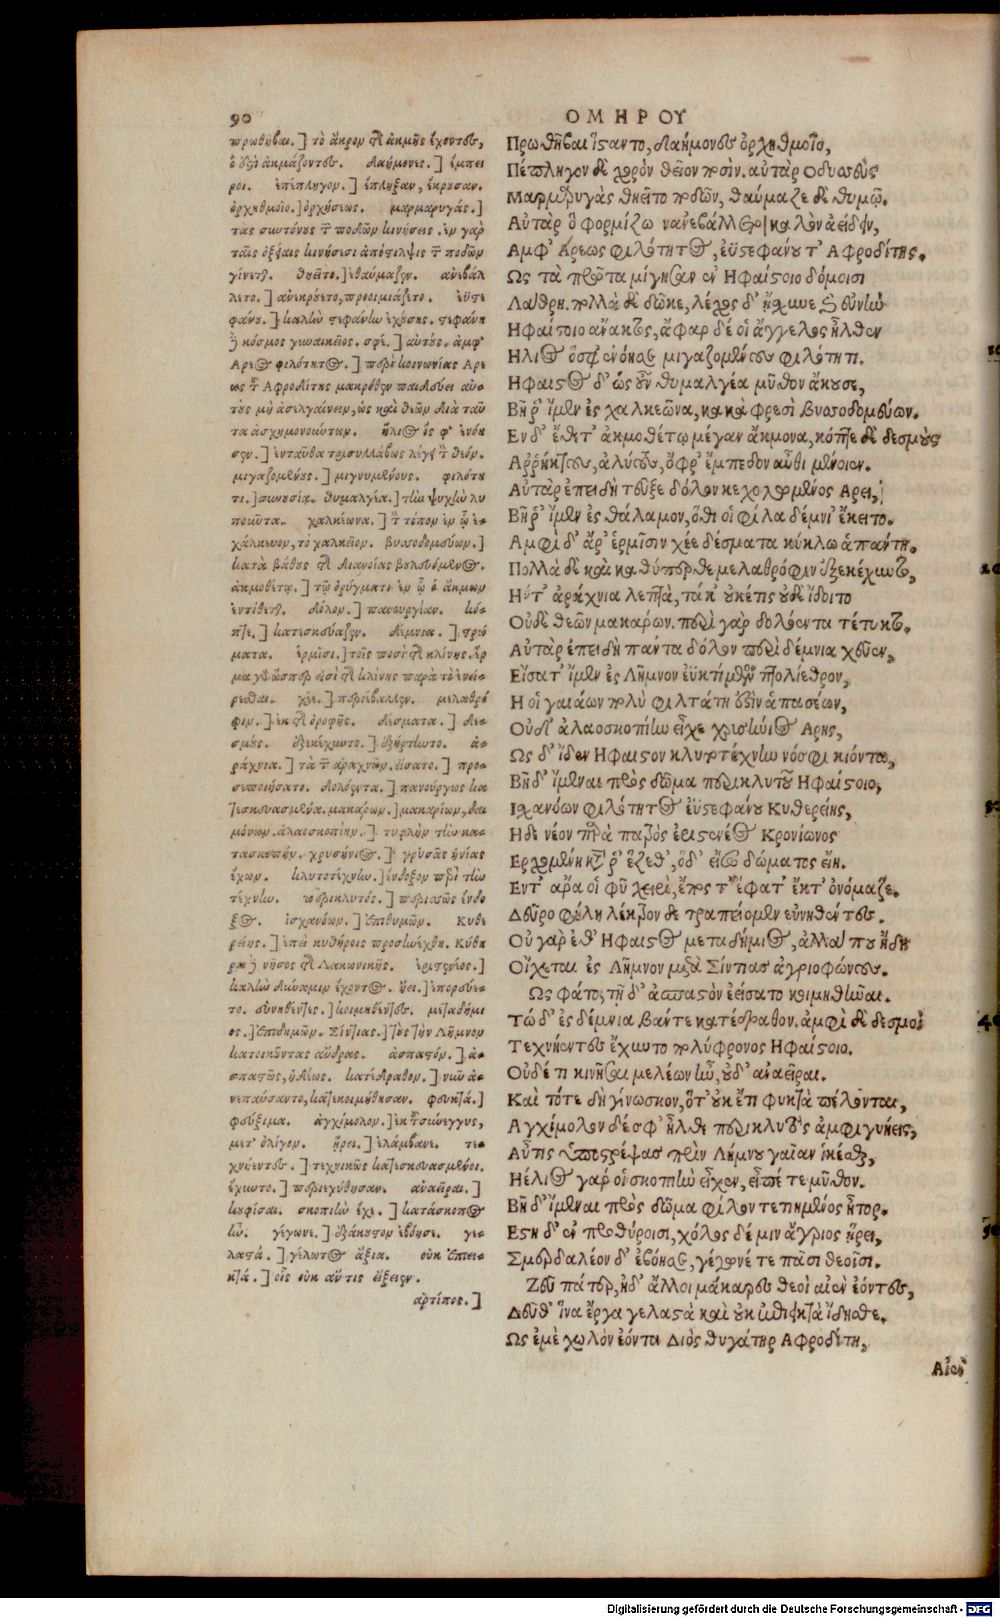 90
ΟΜΗΡΟΥ
πρωθῆβαι.] τὸ ἄκρον τῆς ἀκμῆς ἔχοντες,
ὅ ἐστι ἀκμάζοντες. δαήμονες.] ἔμπει
ροι. ἐπέπληγον.] ἔπληξαν, ἔκρυσαν.
ὀρχηθμοῖο.] ὀρχήσεως. μαρμαρυγάς.]
τὰς συντόνους τῶν ποδῶν κινήσεις. ἐν γὰρ
ταῖς ὀξείαις κινήσεσι ἀπόστιλψις τῶν ποδῶν
γίνεται. θηεῖτο.] ἐθαύμαζεν. ἀνεβάλ
λετο.] ἀνεκρούετο, προοιμιάζετο. εὐστε
φάνου.] καλὴν στεφάνην ἐχούσης. στεφάνη
κόσμος γυναικεῖος. σφέ.] αὐτούς. ἀμφ'
Ἄρεος φιλότητος.] περὶ κοινωνίας Ἄρε
ως καὶ Ἀφροδίτης μακρόθεν παιδεύει αὐ-
τοὺς μὴ ἀσελγαίνειν, ὡς καὶ θεῶν διὰ ταῦ
τα ἀσχημονούντων. ἥλιος ὅς φ' ἐνόη
σεν.] ἐνταῦθα τρισυλλάβως λέγει τὸν θεόν.
μιγαζομένους.] μιγνυμένους. φιλότη
τι.] συνουσία. θυμαλγέα.] τὴν ψυχὴν λυ
ποῦντα. χαλκεῶνα.] τὸν τόπον ἐν ᾧ ἐ-
χάλκευον, τὸ χαλκεῖον. βυσσοδομεύων.]
κατὰ βάθος τῆς διανοίας βουλευόμενος.
ἀκμοθέτῳ.] τῷ ὀρύγματι ἐν ᾧ ὁ ἄκμων
ἐντίθεται. δόλον.] πανουργίαν. κό-
πτε.] κατεσκεύαζεν. δέμνια.] στρώ
ματα. ἑρμῖσι.] τοῖς ποσὶ τῆς κλίνης. ἕρ
μα γὰρ ὥσπερ εἰσὶ τῆς κλίνης παρὰ τὸ ἐνεί-
ρεσθαι. χέε.] περιέβαλλεν. μελαθρό
φιν.] ἐκ τῆς ὀροφῆς. δέσματα.] δε-
σμούς. ἐξεκέχυντο.] ἐξήρτηντο. ἀ-
ράχνια.] τὰ τῶν ἀραχνῶν. εἴσατο.] προσ-
εποιήσατο. δολόεντα.] πανούργως κα
τεσκευασμένα. μακάρων.] μακαρίων, δαι
μόνων. ἀλαοσκοπίην.] τυφλὴν τὴν κα-
τασκοπήν. χρυσήνιος.] χρυσᾶς ἡνίας
ἔχων. κλυτοτέχνην.] ἔνδοξον περὶ τὴν
τέχνην. περικλυτός.] περισσῶς ἔνδο
ξος. ἰσχανόων.] ἐπιθυμῶν. Κυθε
ρείης.] ἐπεὶ κυθήροις προσηνέχθη. Κύθη
ρα νῆσος τῆς Λακωνικῆς. ἐρισθενέος.]
καλὴν δύναμιν ἔχοντος. ᾔει.] ἐπορεύε-
το. εὐνηθέντες.] κοιμηθέντες. μεταδήμι
ος.] ἐπιδημῶν. Σίντιας.] τοὺς τὴν Λῆμνον
κατοικοῦντας ἄνδρας. ἀσπαστόν.] ἀ-
σπαστῶς, ἡδέως. κατέδραθον.] νῦν ἀ-
νεπαύσαντο, κατεκοιμήθησαν. φυκτά.]
φεύξιμα. ἀγχίμολον.] ἐκ τοῦ σύνεγγυς,
μετ' ὀλίγον. ᾕρει.] ἐλάμβανε. τε-
χνήεντες.] τεχνικῶς κατεσκευασμένοι.
ἔχυντο.] περιεχύθησαν. ἀναεῖραι.]
κουφίσαι. σκοπιὴν ἔχε.] κατάσκοπος
ἦν. γέγωνε.] ἐξάκουστον ἐβόησε. γε-
λαστά.] γέλωτος ἄξια. οὐκ ἐπιει-
κτά.] οἷς οὐκ ἄν τις εἴξειεν.
ἀρτίπος.]
Πρωθῆβαι ἵσταντο, δαήμονες ὀρχηθμοῖο,
Πέπληγον δὲ χορὸν θεῖον ποσίν. αὐτὰρ Ὀδυσσεὺς
Μαρμαρυγὰς θηεῖτο ποδῶν, θαύμαζε δὲ θυμῷ.
Αὐτὰρ ὁ φορμίζων ἀνεβάλλετο καλὸν ἀείδειν,
Ἀμφ' Ἄρεως φιλότητος, ἐϋστεφάνου τ' Ἀφροδίτης.
Ὡς τὰ πρῶτα μίγησαν ἐν Ἡφαίστοιο δόμοισι
Λάθρῃ. πολλὰ δὲ δῶκε, λέχος δ' ᾔσχυνε καὶ εὐνὴν
Ἡφαίστοιο ἄνακτος, ἄφαρ δέ οἱ ἄγγελος ἦλθεν
Ἥλιος ὅσφ' ἐνόησε μιγαζομένους φιλότητι.
Ἥφαιστος δ' ὡς οὖν θυμαλγέα μῦθον ἄκουσε,
Βῆ ῥ' ἴμεν ἐς χαλκεῶνα, κακὰ φρεσὶ βυσσοδομεύων.
Ἐν δ' ἔθετ' ἀκμοθέτῳ μέγαν ἄκμονα, κόπτε δὲ δεσμοὺς
Ἀῤῥήκτους, ἀλύτους, ὄφρ' ἔμπεδον αὖθι μένοιεν.
Αὐτὰρ ἐπειδὴ τεῦξε δόλον κεχολωμένος Ἄρει,
Βῆ ῥ' ἴμεν ἐς θάλαμον, ὅθι οἱ φίλα δέμνι' ἔκειτο.
Ἀμφὶ δ' ἄρ' ἑρμῖσιν χέε δέσματα κύκλῳ ἁπάντῃ.
Πολλὰ δὲ καὶ καθύπερθε μελαθρόφιν ἐξεκέχυντο,
Ἠΰτ' ἀράχνια λεπτὰ, τά κ' οὐκέτις οὐδὲ ἴδοιτο
Οὐδὲ θεῶν μακάρων. περὶ γὰρ δολόεντα τέτυκτο.
Αὐτὰρ ἐπειδὴ πάντα δόλον περὶ δέμνια χεῦεν,
Εἴσατ' ἴμεν ἐς Λῆμνον ἐϋκτίμενον πτολίεθρον,
Ἥ οἱ γαιάων πολὺ φιλτάτη ἐστὶν ἁπασέων,
Οὐδ' ἀλαοσκοπίην εἶχε χρυσήνιος Ἄρης,
Ὡς δ' ἴδεν Ἥφαιστον κλυτοτέχνην νόσφι κιόντα,
Βῆ δ' ἴμεναι πρὸς δῶμα περικλυτοῦ Ἡφαίστοιο,
Ἰσχανόων φιλότητος ἐϋστεφάνου Κυθερείης,
Ἡ δὲ νέον παρὰ πατρὸς ἐρισθενέος Κρονίωνος
Ἐρχομένη κατ' ἄρ' ἕζεθ', ὁ δ' εἴσω δώματος ᾔει.
Ἔν τ' ἄρα οἱ φῦ χειρὶ, ἔπος τ' ἔφατ' ἔκ τ' ὀνόμαζε.
Δεῦρο φίλη λέκτρον δὲ τραπείομεν εὐνηθέντες.
Οὐ γὰρ ἔθ' Ἥφαιστος μεταδήμιος, ἀλλά που ἤδη
Οἴχεται ἐς Λῆμνον μετὰ Σίντιας ἀγριοφώνους.
Ὣς φάτο, τῇ δ' ἀσπαστὸν ἐείσατο κοιμηθῆναι.
Τὼ δ' ἐς δέμνια βάντε κατέδραθον. ἀμφὶ δὲ δεσμοὶ
Τεχνήεντες ἔχυντο πολύφρονος Ἡφαίστοιο.
Οὐδέ τι κινῆσαι μελέων ἦν, οὐδ' ἀναεῖραι.
Καὶ τότε δὴ γίνωσκον, ὅτ' οὐκ ἔτι φυκτὰ πέλονται,
Ἀγχίμολον δέ σφ' ἦλθε περικλυτὸς ἀμφιγυήεις,
Αὖτις ὑποστρέψας πρὶν Λήμνου γαῖαν ἱκέσθαι,
Ἠέλιος γάρ οἱ σκοπιὴν εἶχεν, εἶπέ τε μῦθον.
Βῆ δ' ἴμεναι πρὸς δῶμα φίλον τετιημένος ἦτορ.
Ἔστη δ' ἐν προθύροισι, χόλος δέ μιν ἄγριος ᾕρει,
Σμερδαλέον δ' ἐβόησε, γέγωνέ τε πᾶσι θεοῖσι.
Ζεῦ πάτερ, ἠδ' ἄλλοι μάκαρες θεοὶ αἰὲν ἐόντες,
Δεῦθ' ἵνα ἔργα γελαστὰ καὶ οὐκ ἐπιεικτὰ ἴδησθε.
Ὡς ἐμὲ χωλὸν ἐόντα Διὸς θυγάτηρ Ἀφροδίτη,
Αἰὲν
Digitalisierung gefördert durch die Deutsche Forschungsgemeinschaft - DFG